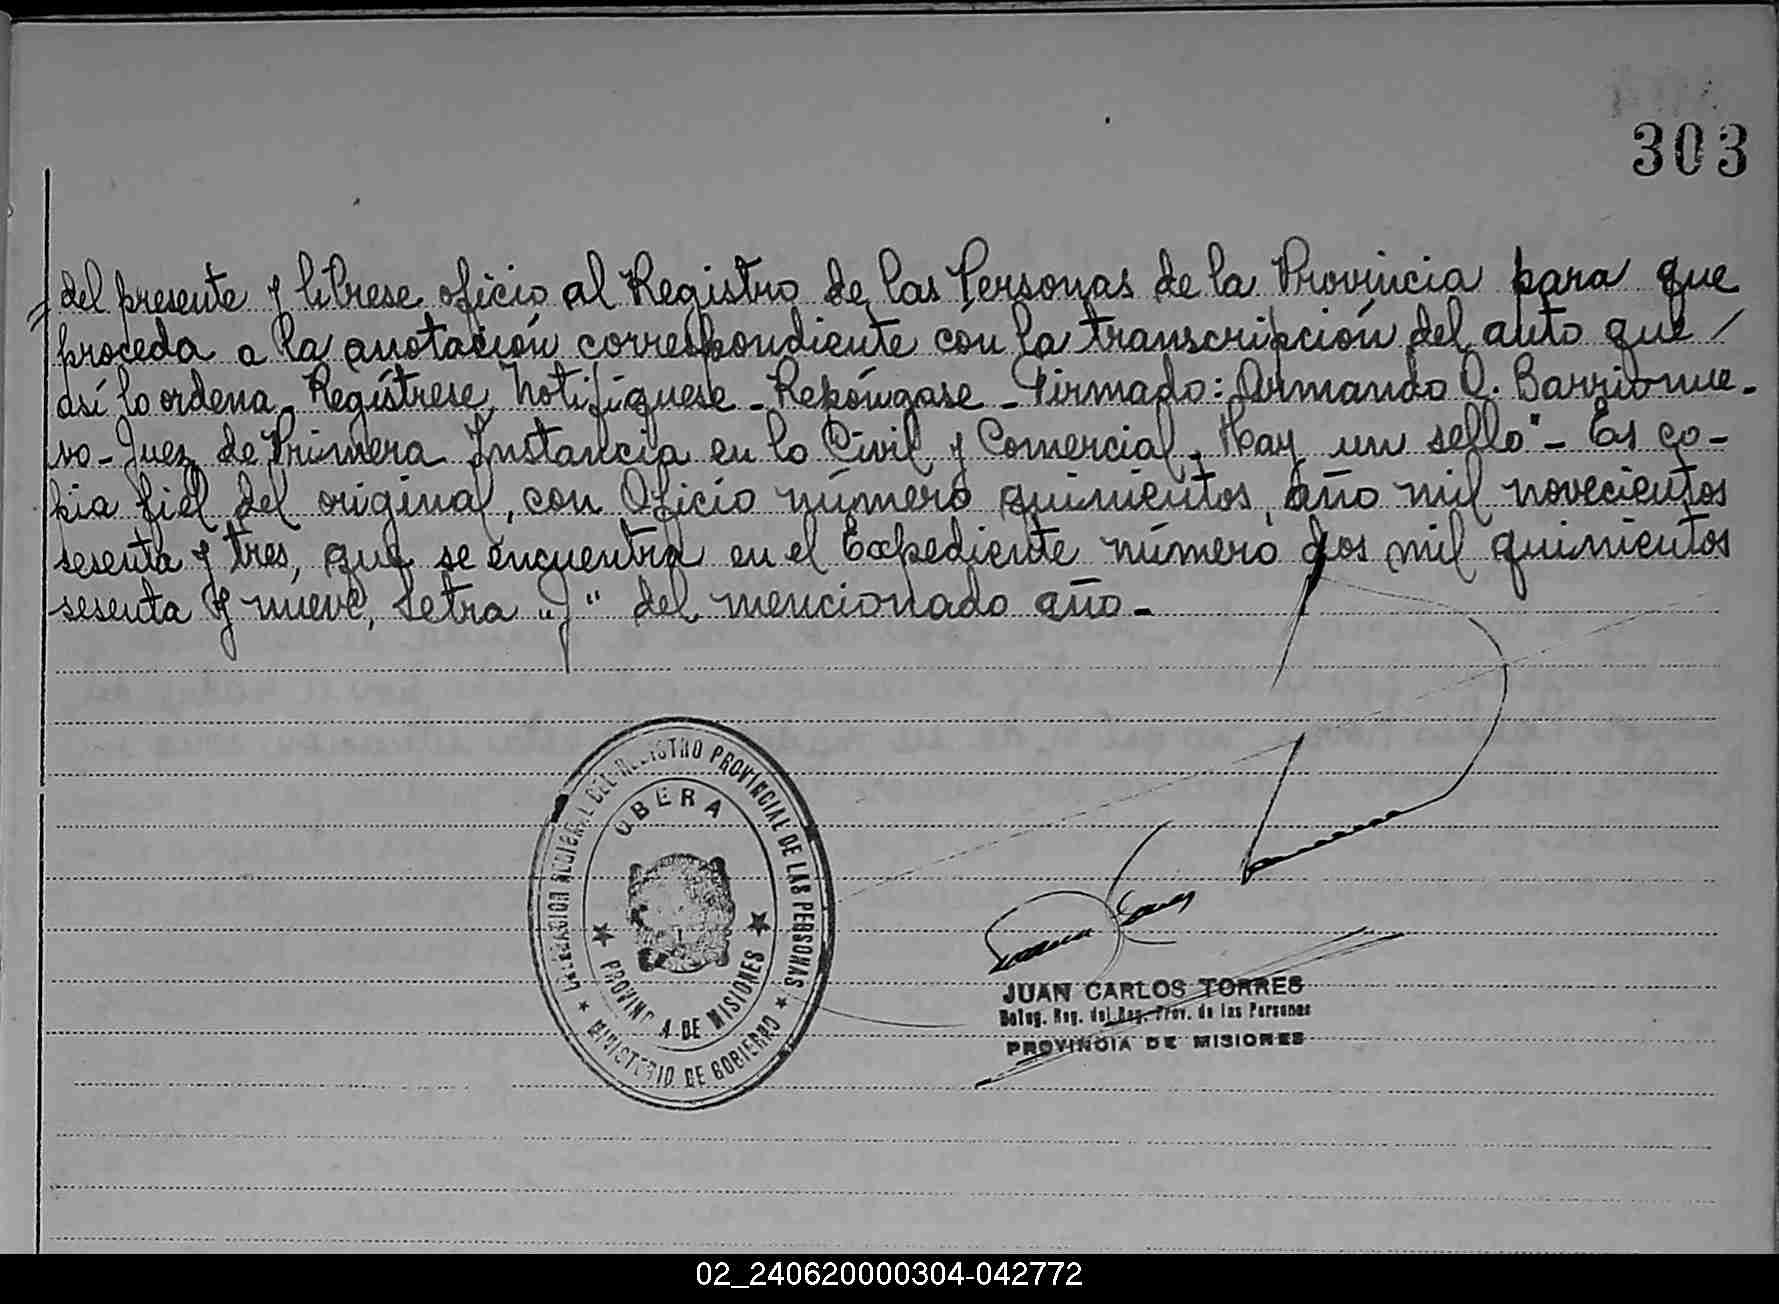 303
del presente y líbrese oficio al Registro de las Personas de la Provincia para que
proceda a la anotación correspondiente con la transcripción del auto que /
así lo ordena. Regístrese, Notifíquese - Repóngase - Firmado: Armando Q. Barrionue-
vo - Juez de Primera Instancia en lo Civil y Comercial, Hay un sello" - Es co-
pia fiel del original, con Oficio número quinientos, año mil novecientos
sesenta y tres, que se encuentra en el Expediente número dos mil quinientos
sesenta y nueve, Letra "J" del mencionado año -
DELEGACION REGIONAL DEL REGISTRO PROVINCIAL DE LAS PERSONAS
OBERA
PROVINCIA DE MISIONES
MINISTERIO DE GOBIERNO
JUAN CARLOS TORRES
Deleg. Reg. del Reg. Prov. de las Personas
PROVINCIA DE MISIONES
02_240620000304-042772